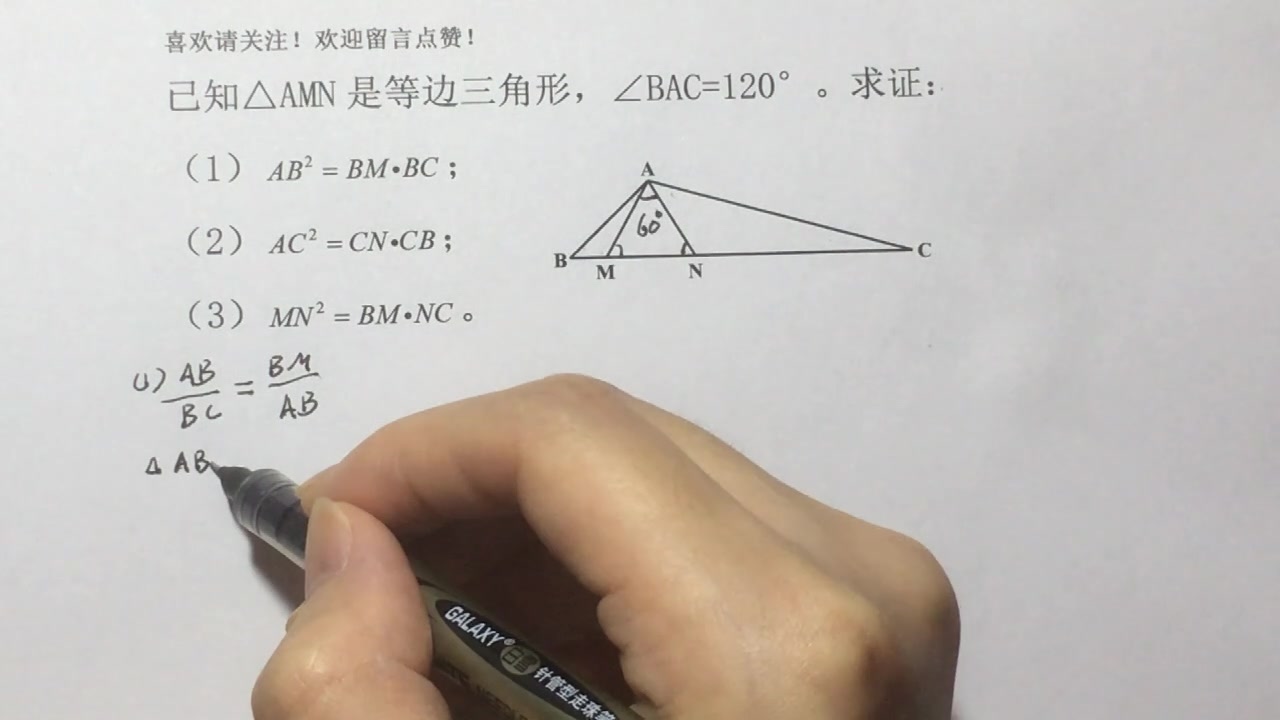 喜欢请关注！欢迎留言点赞！
已知△AMN 是等边三角形，∠BAC=120°。求证：
（1） AB² = BM•BC；
（2） AC² = CN•CB；
（3） MN² = BM•NC。
A
60°
B
M
N
C
(1) AB/BC = BM/AB
△ AB
GALAXY®
针管型走珠笔